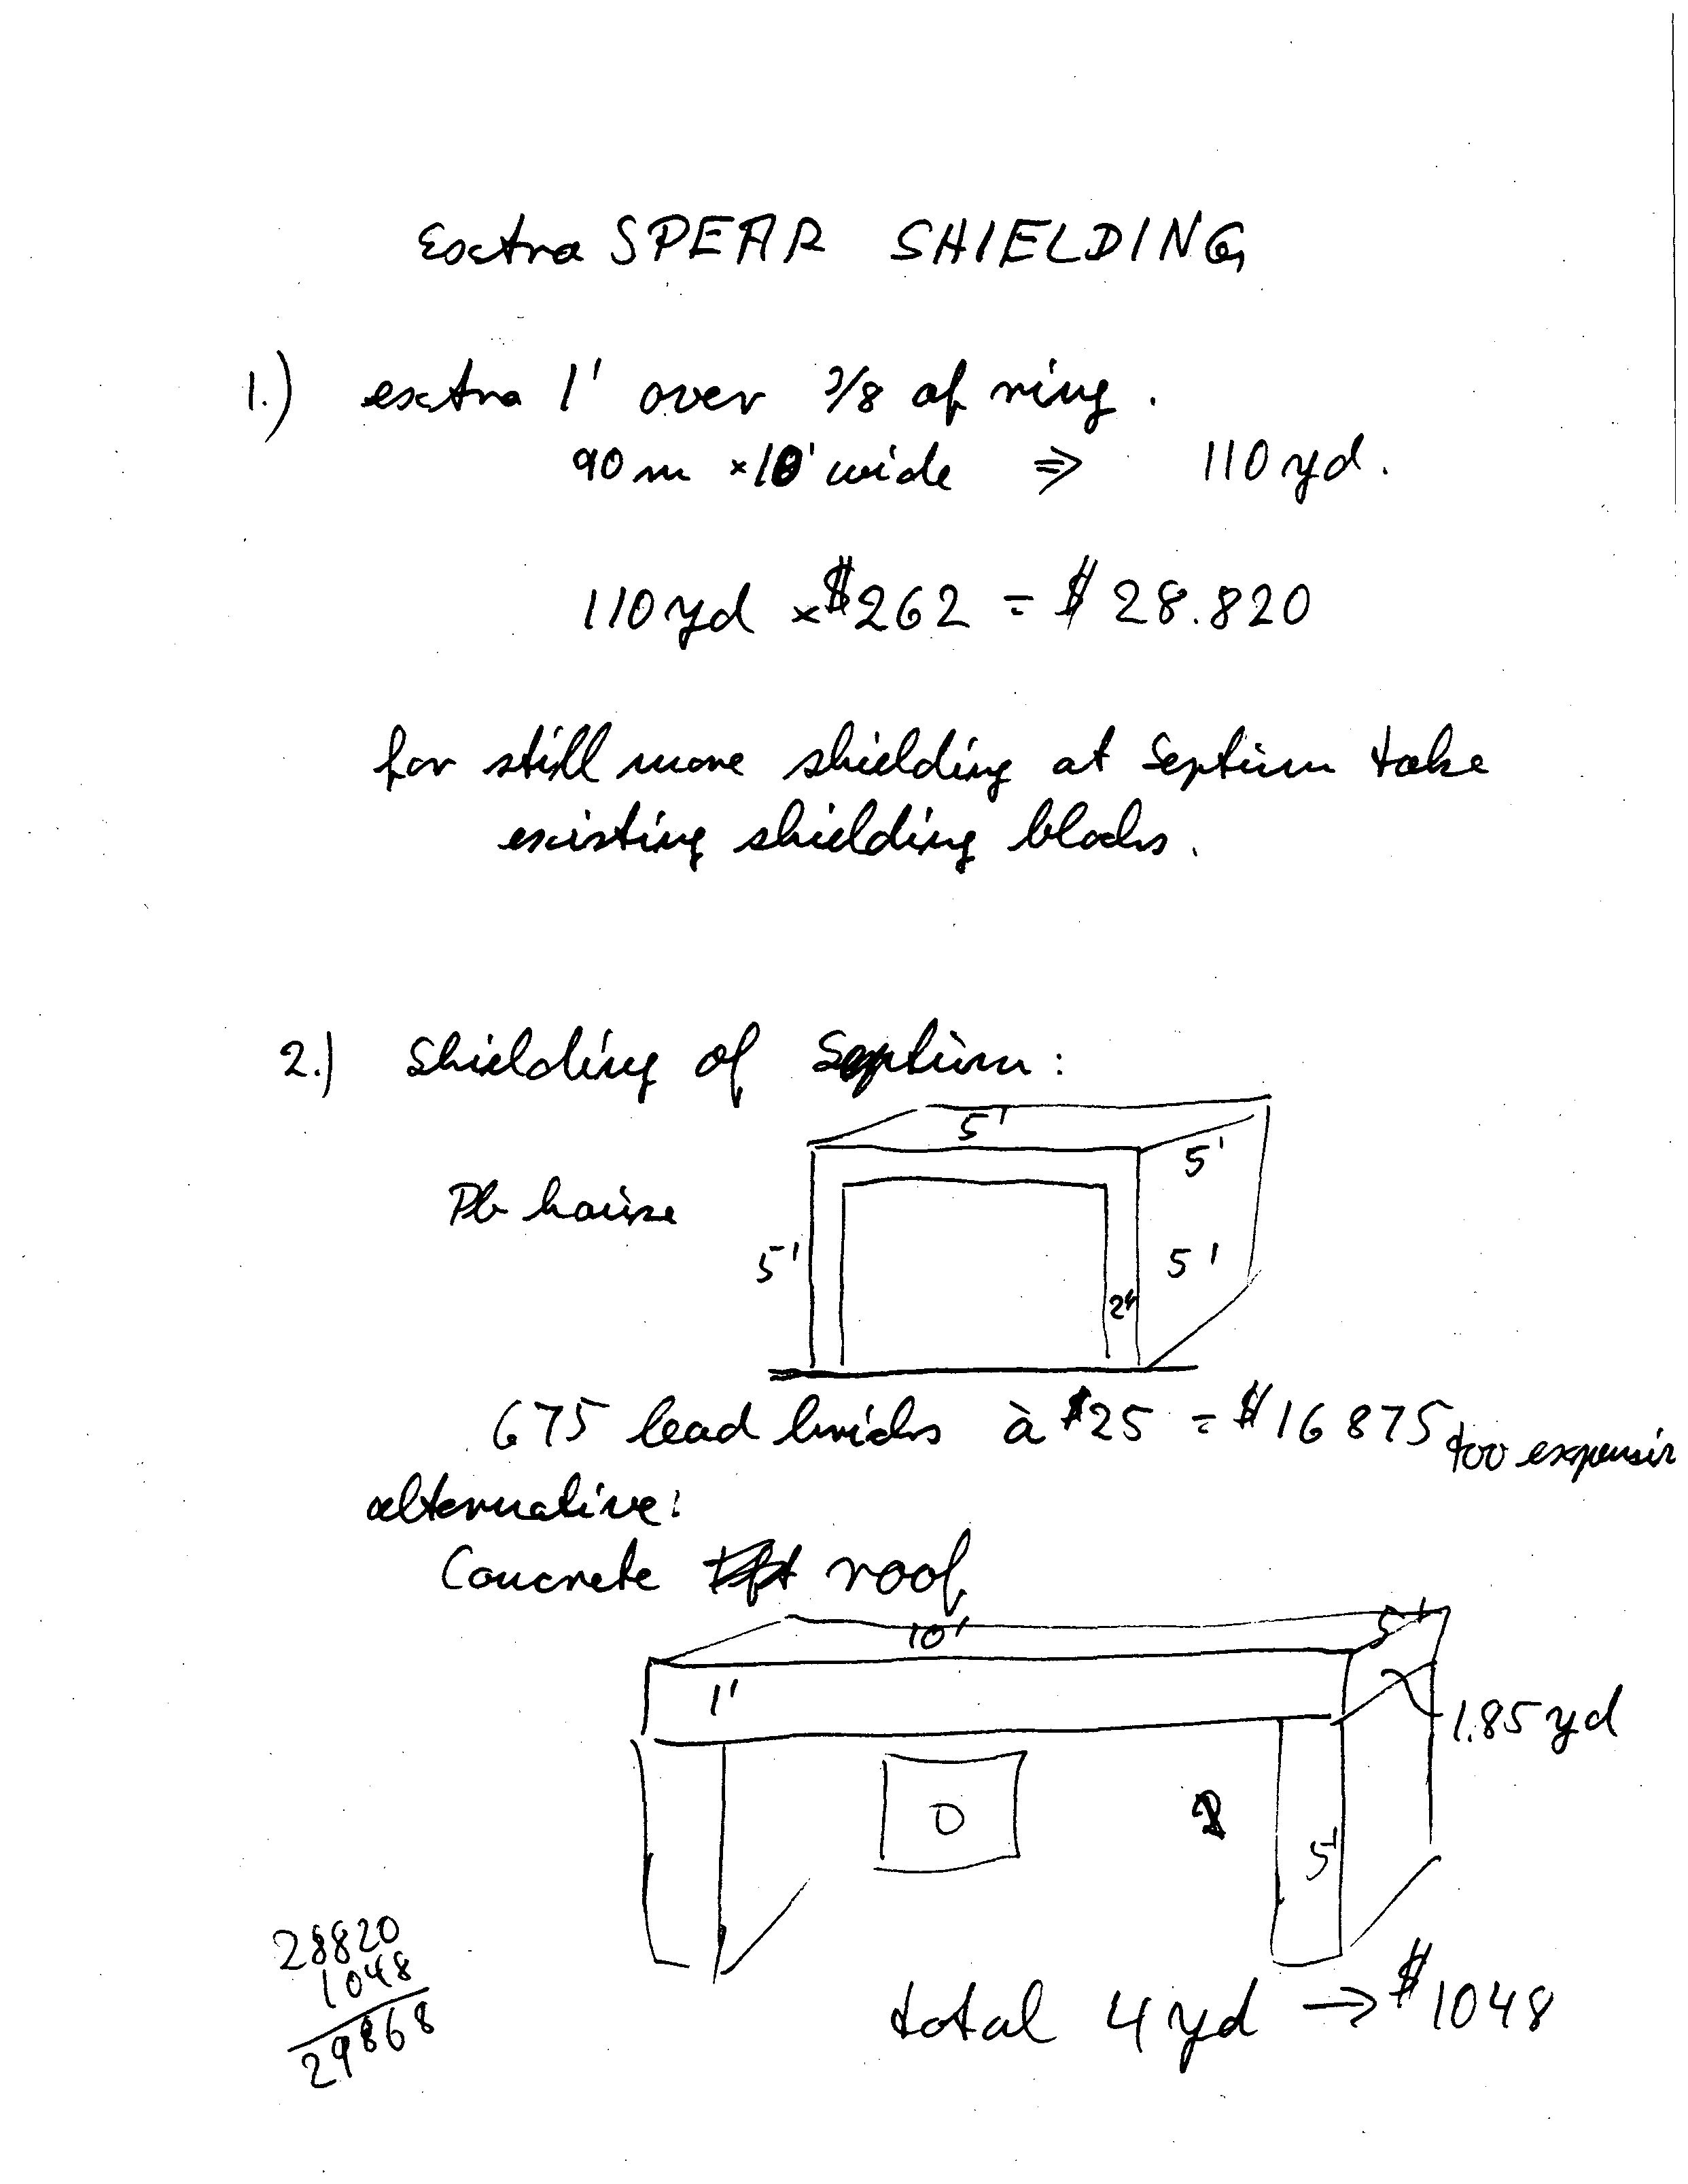 Extra SPEAR SHIELDING
1.) extra 1' over 3/8 of ring.
90 m x 10' wide ⇒ 110 yd.
110 yd x $262 = $ 28.820
for still more shielding at Septum take
existing shielding blocks.
2.) Shielding of Septum:
5'
5'
Pb house
5'
5'
2"
675 lead bricks à $25 = $16875 too expensiv
alternative:
Concrete roof
10'
5'
1'
1.85 yd
5'
28820
1048
29868
total 4 yd → $1048